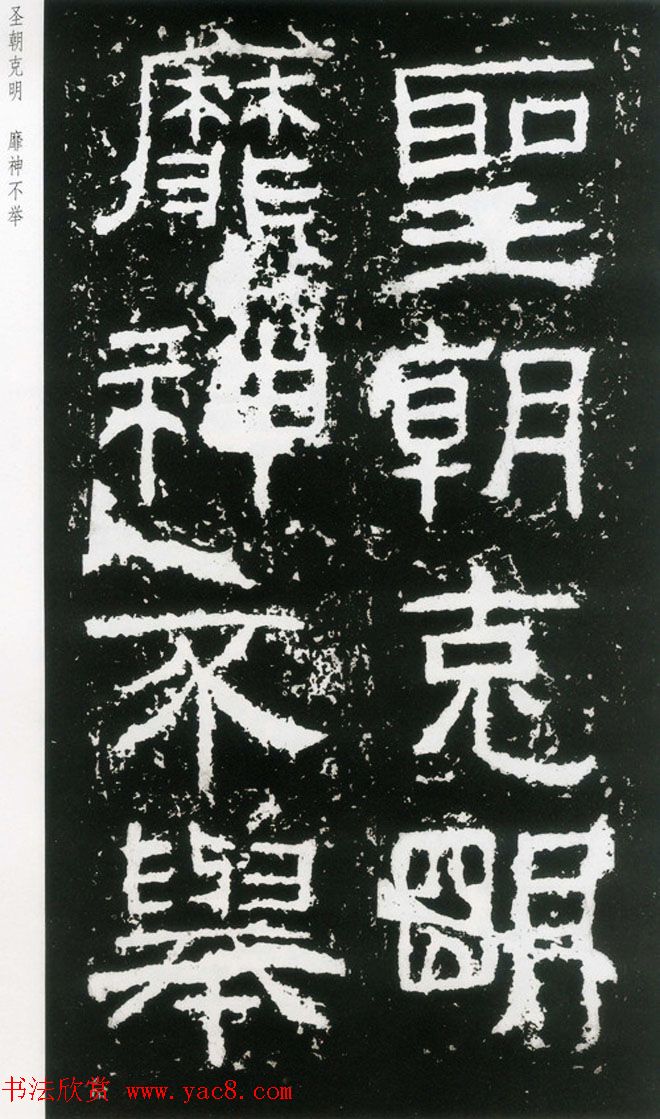 聖朝克明
靡神不舉
圣朝克明 靡神不举
书法欣赏 www.yac8.com